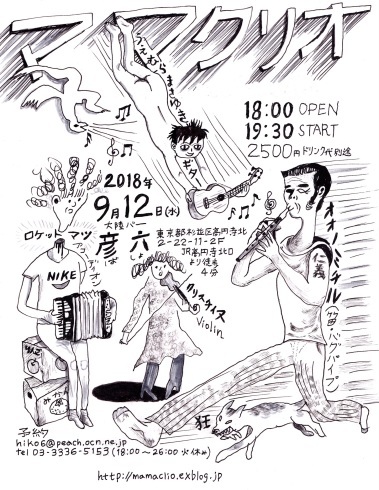 ママクリオ
うえむらまさゆき
ギター
18:00 OPEN
19:30 START
2500円ドリンク代別途
2018年
9月12日(水)
大陸バー
彦六
ひころく
東京都杉並区高円寺北
2-22-11-2F
JR高円寺北口
より徒歩
4分
ロケットマツ
アコーディオン
NIKE
クリスティヌ
Violin
オオノミチル
(笛・バグパイプ)
仁義
みかん
狂
予約
hiko6@peach.ocn.ne.jp
tel 03-3336-5153 (18:00〜26:00 火休み)
http://mamaclio.exblog.jp